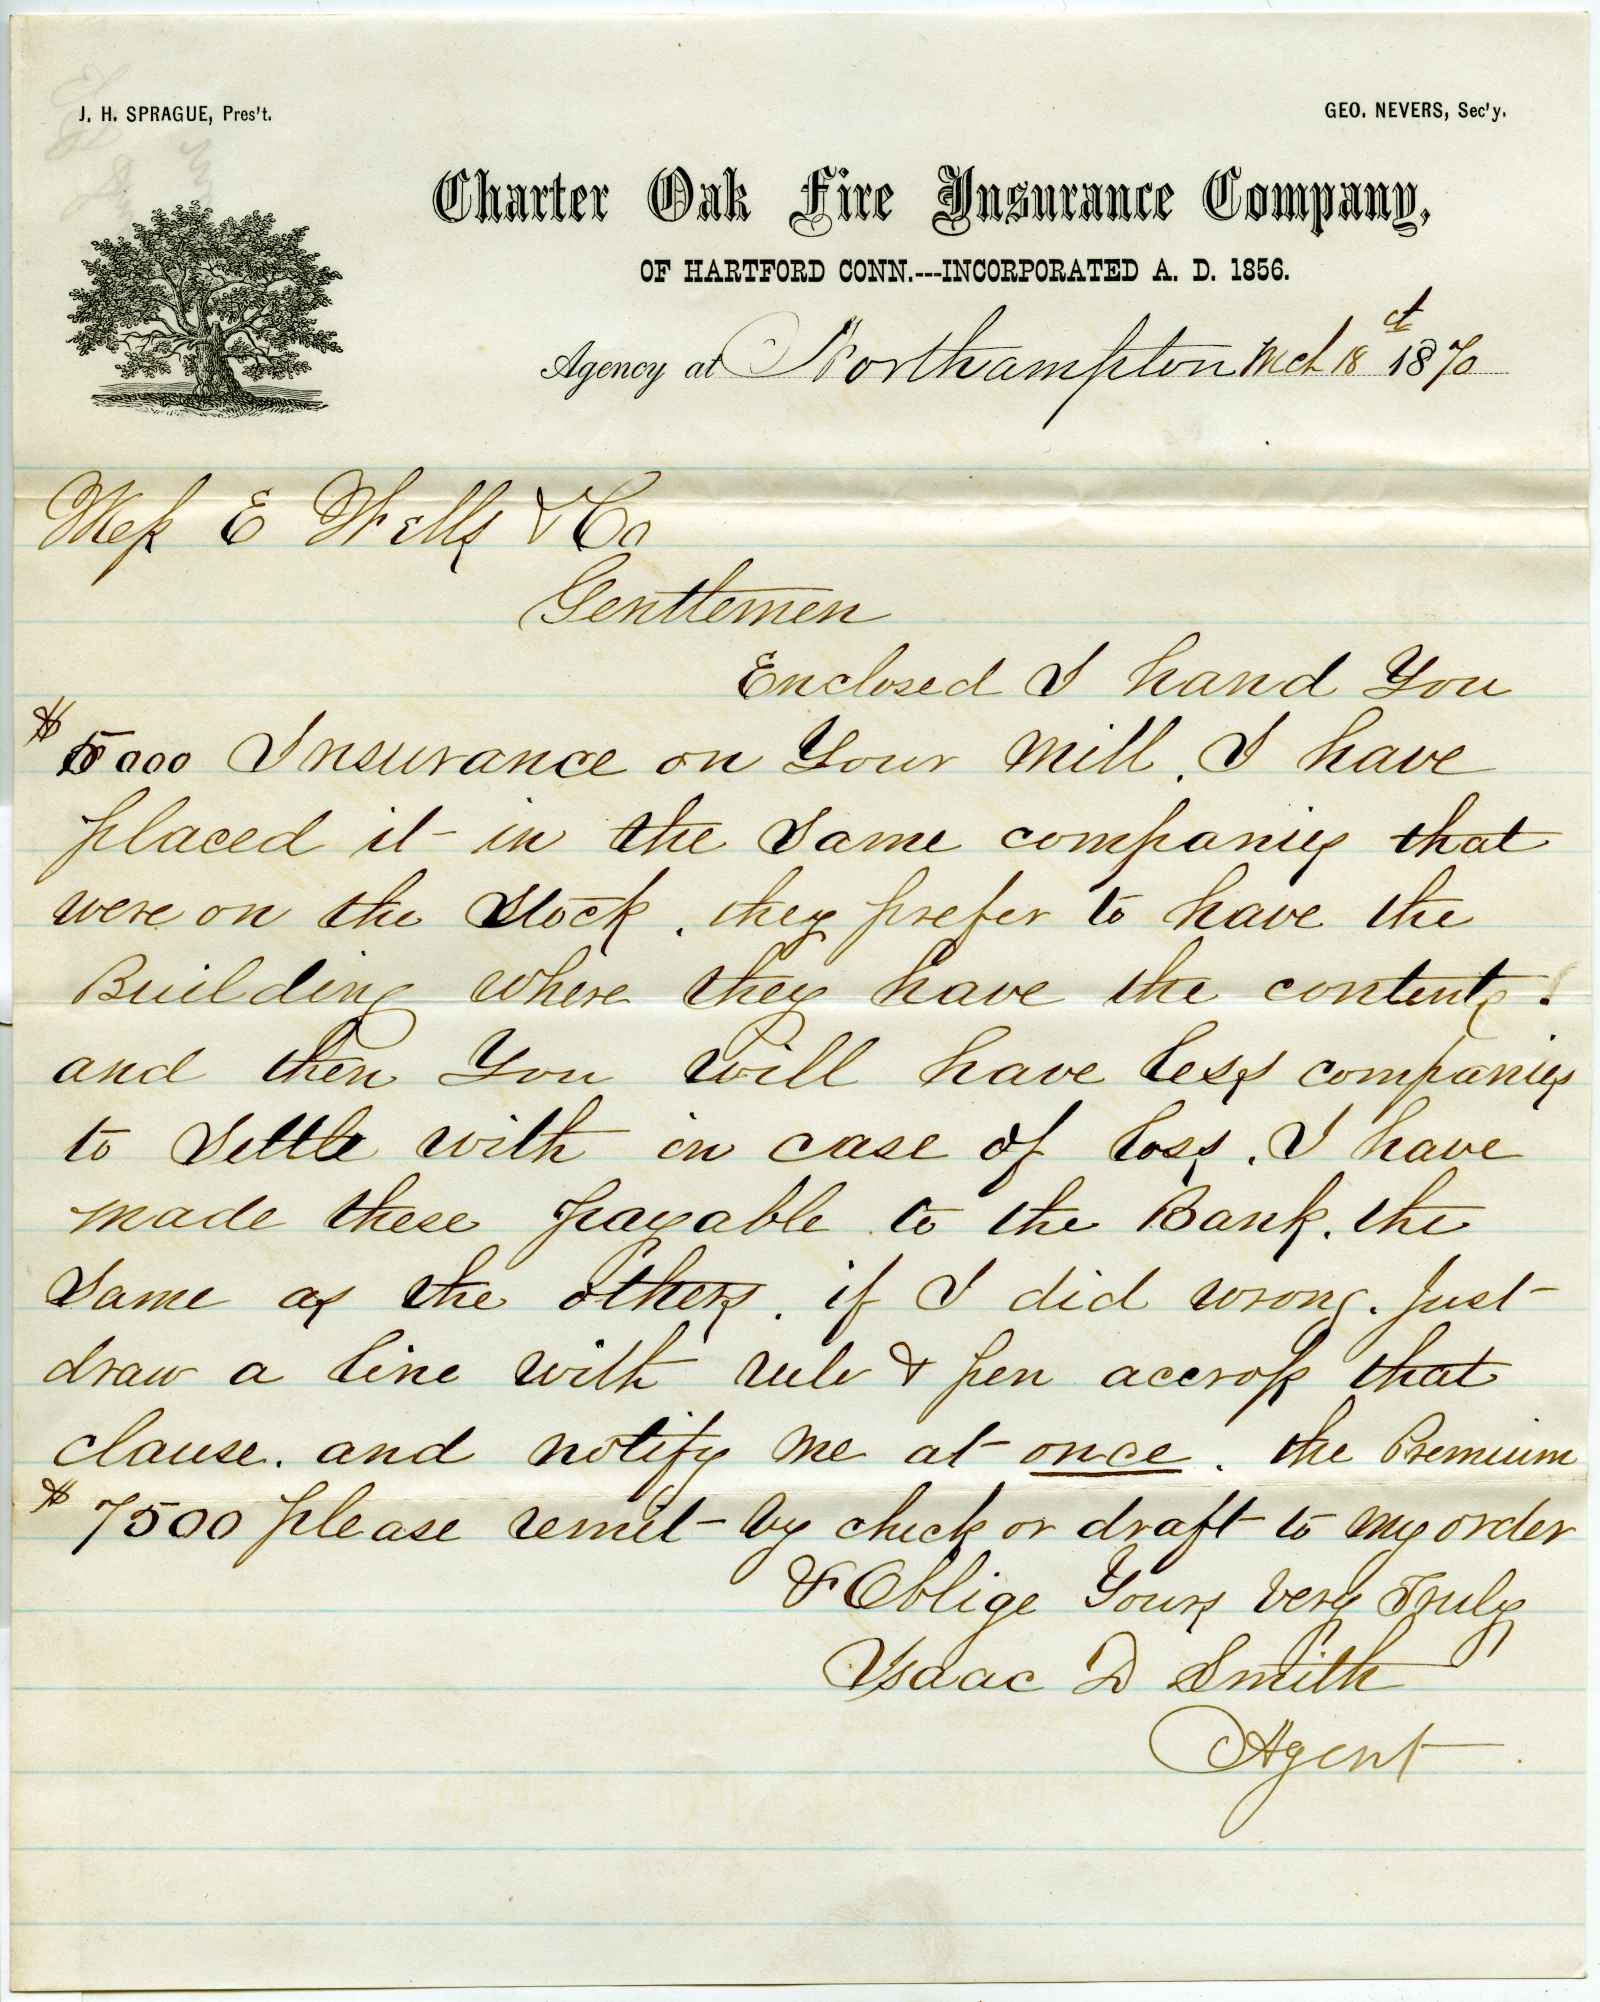 J. H. SPRAGUE, Pres't.
GEO. NEVERS, Sec'y.
Charter Oak Fire Insurance Company,
OF HARTFORD CONN.---INCORPORATED A. D. 1856.
Agency at Northampton Mch 18 ct 1870
Mess E Wells & Co
Gentlemen
Enclosed I hand You
$5000 Insurance on Your Mill. I have
placed it in the Same companies that
were on the Stock. they prefer to have the
Building where they have the contents.
and then You will have less companies
to Settle with in case of loss. I have
made these payable to the Bank. the
Same as the others. if I did wrong. Just
draw a line with rule & pen accross that
clause. and notify me at once. the Premium
$7500 please remit by check or draft to my order
& Oblige Yours Very Truly
Isaac D Smith
Agent